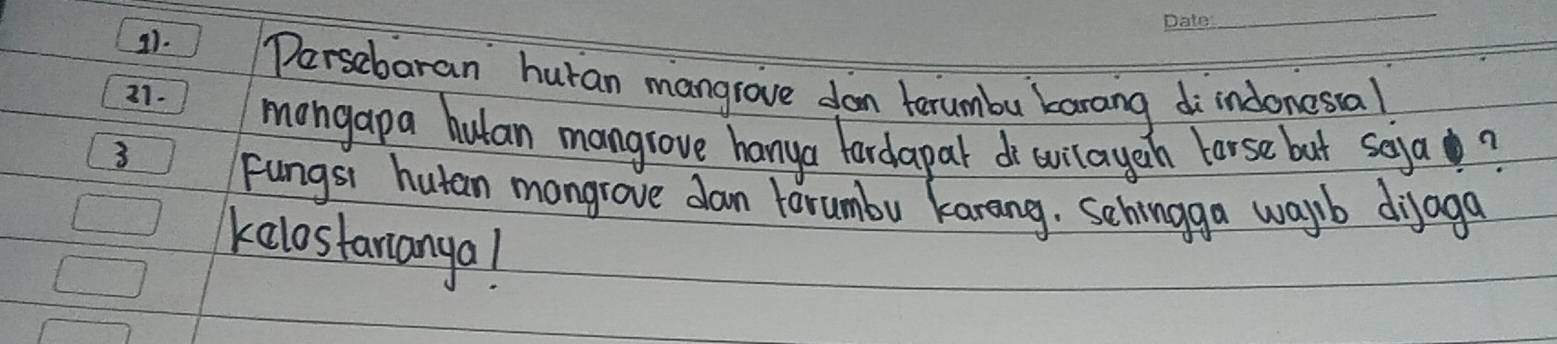 Date:
1). Persebaran hutan mangrove dan terumbu karang di indonesia!
2). mengapa hutan mangrove hanya terdapat di wilayah terse but saja ?
3 Fungsi hutan mangrove dan terumbu karang. Sehingga wajib dijaga
kelestarianya!